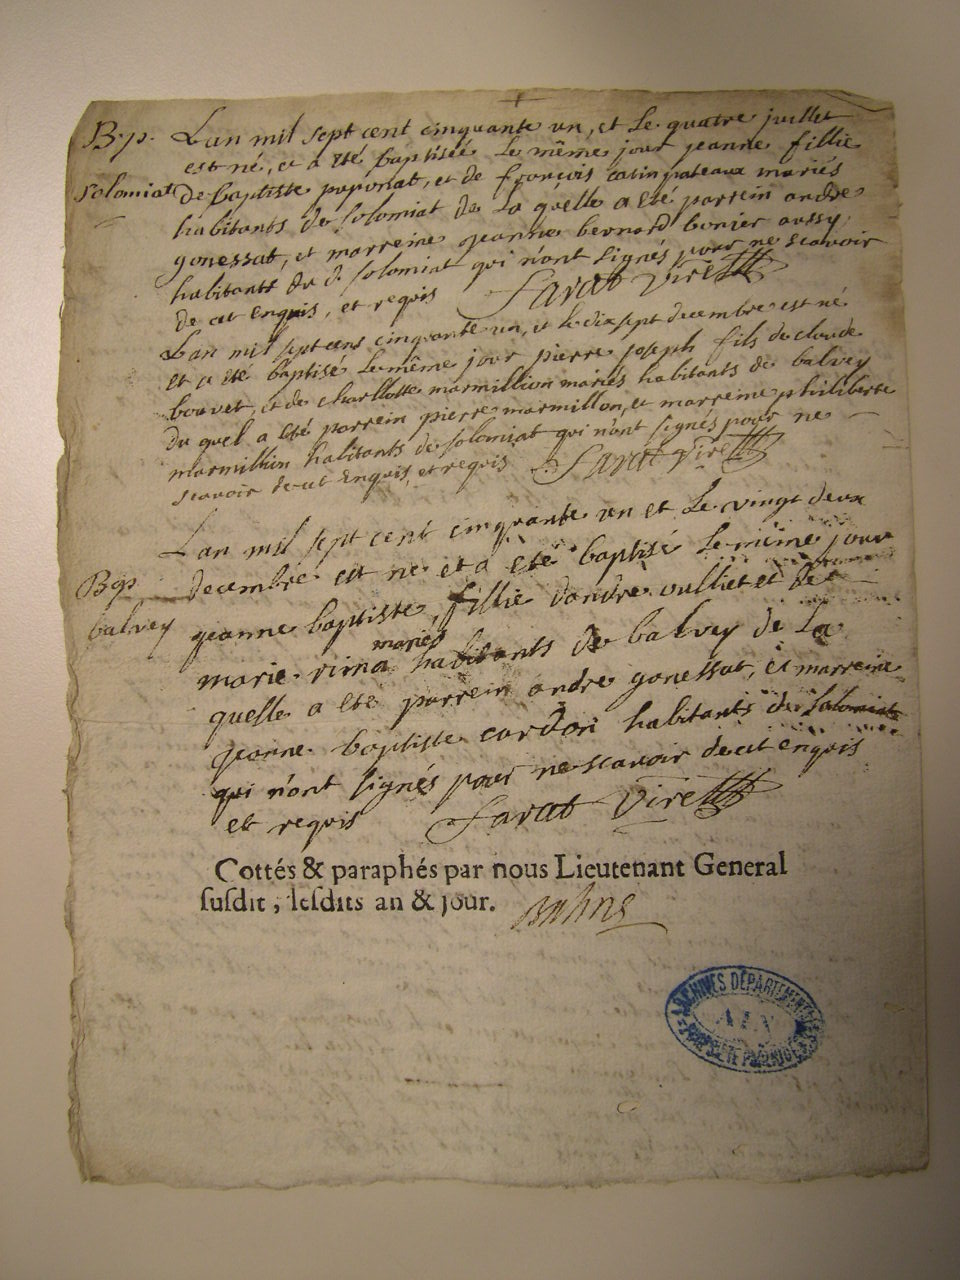 B.p.
Solomiat
Lan mil sept cent cinquante un, et le quatre juillet
est né, et a été baptisée le même jour jeanne fillie
de baptiste puponat, et de françois catin pateaux mariés
habitants de solomiat de la quelle a été parrein andre
gonessat, et marreine jeanne bernard bonier aussy
habitants du d. solomiat qui n'ont signés pour ne scavoir
de cet enquis, et requis Savat Viret
Lan mil sept cens cinquante un, et le dix sept decembre est né
et a été baptisé le même jour pierre joseph fils de claude
bouvet, et de charllotte marmillion mariés habitants de balvey
du quel a été parrein pierre marmillon, et marreine philiberte
marmillion habitants de solomiat qui n'ont signés pour ne
scavoir de cet enquis, et requis Savat Viret
Bap.
balvey
Lan mil sept cent cinquante un et le vingt deux
decembre est né et a été baptisé le même jour
jeanne baptiste, fillie dandre vulliet et de
marie rima mariés habitants de balvey de la
quelle a été parrein andre gonessat, et marreine
jeanne baptiste cardon habitants de Solomiat
qui n'ont signés pour ne scavoir de cet enquis
et requis Savat Viret
Cottés & paraphés par nous Lieutenant General
susdit, lesdits an & jour.
ARCHIVES DÉPARTEMENTALES
AIN